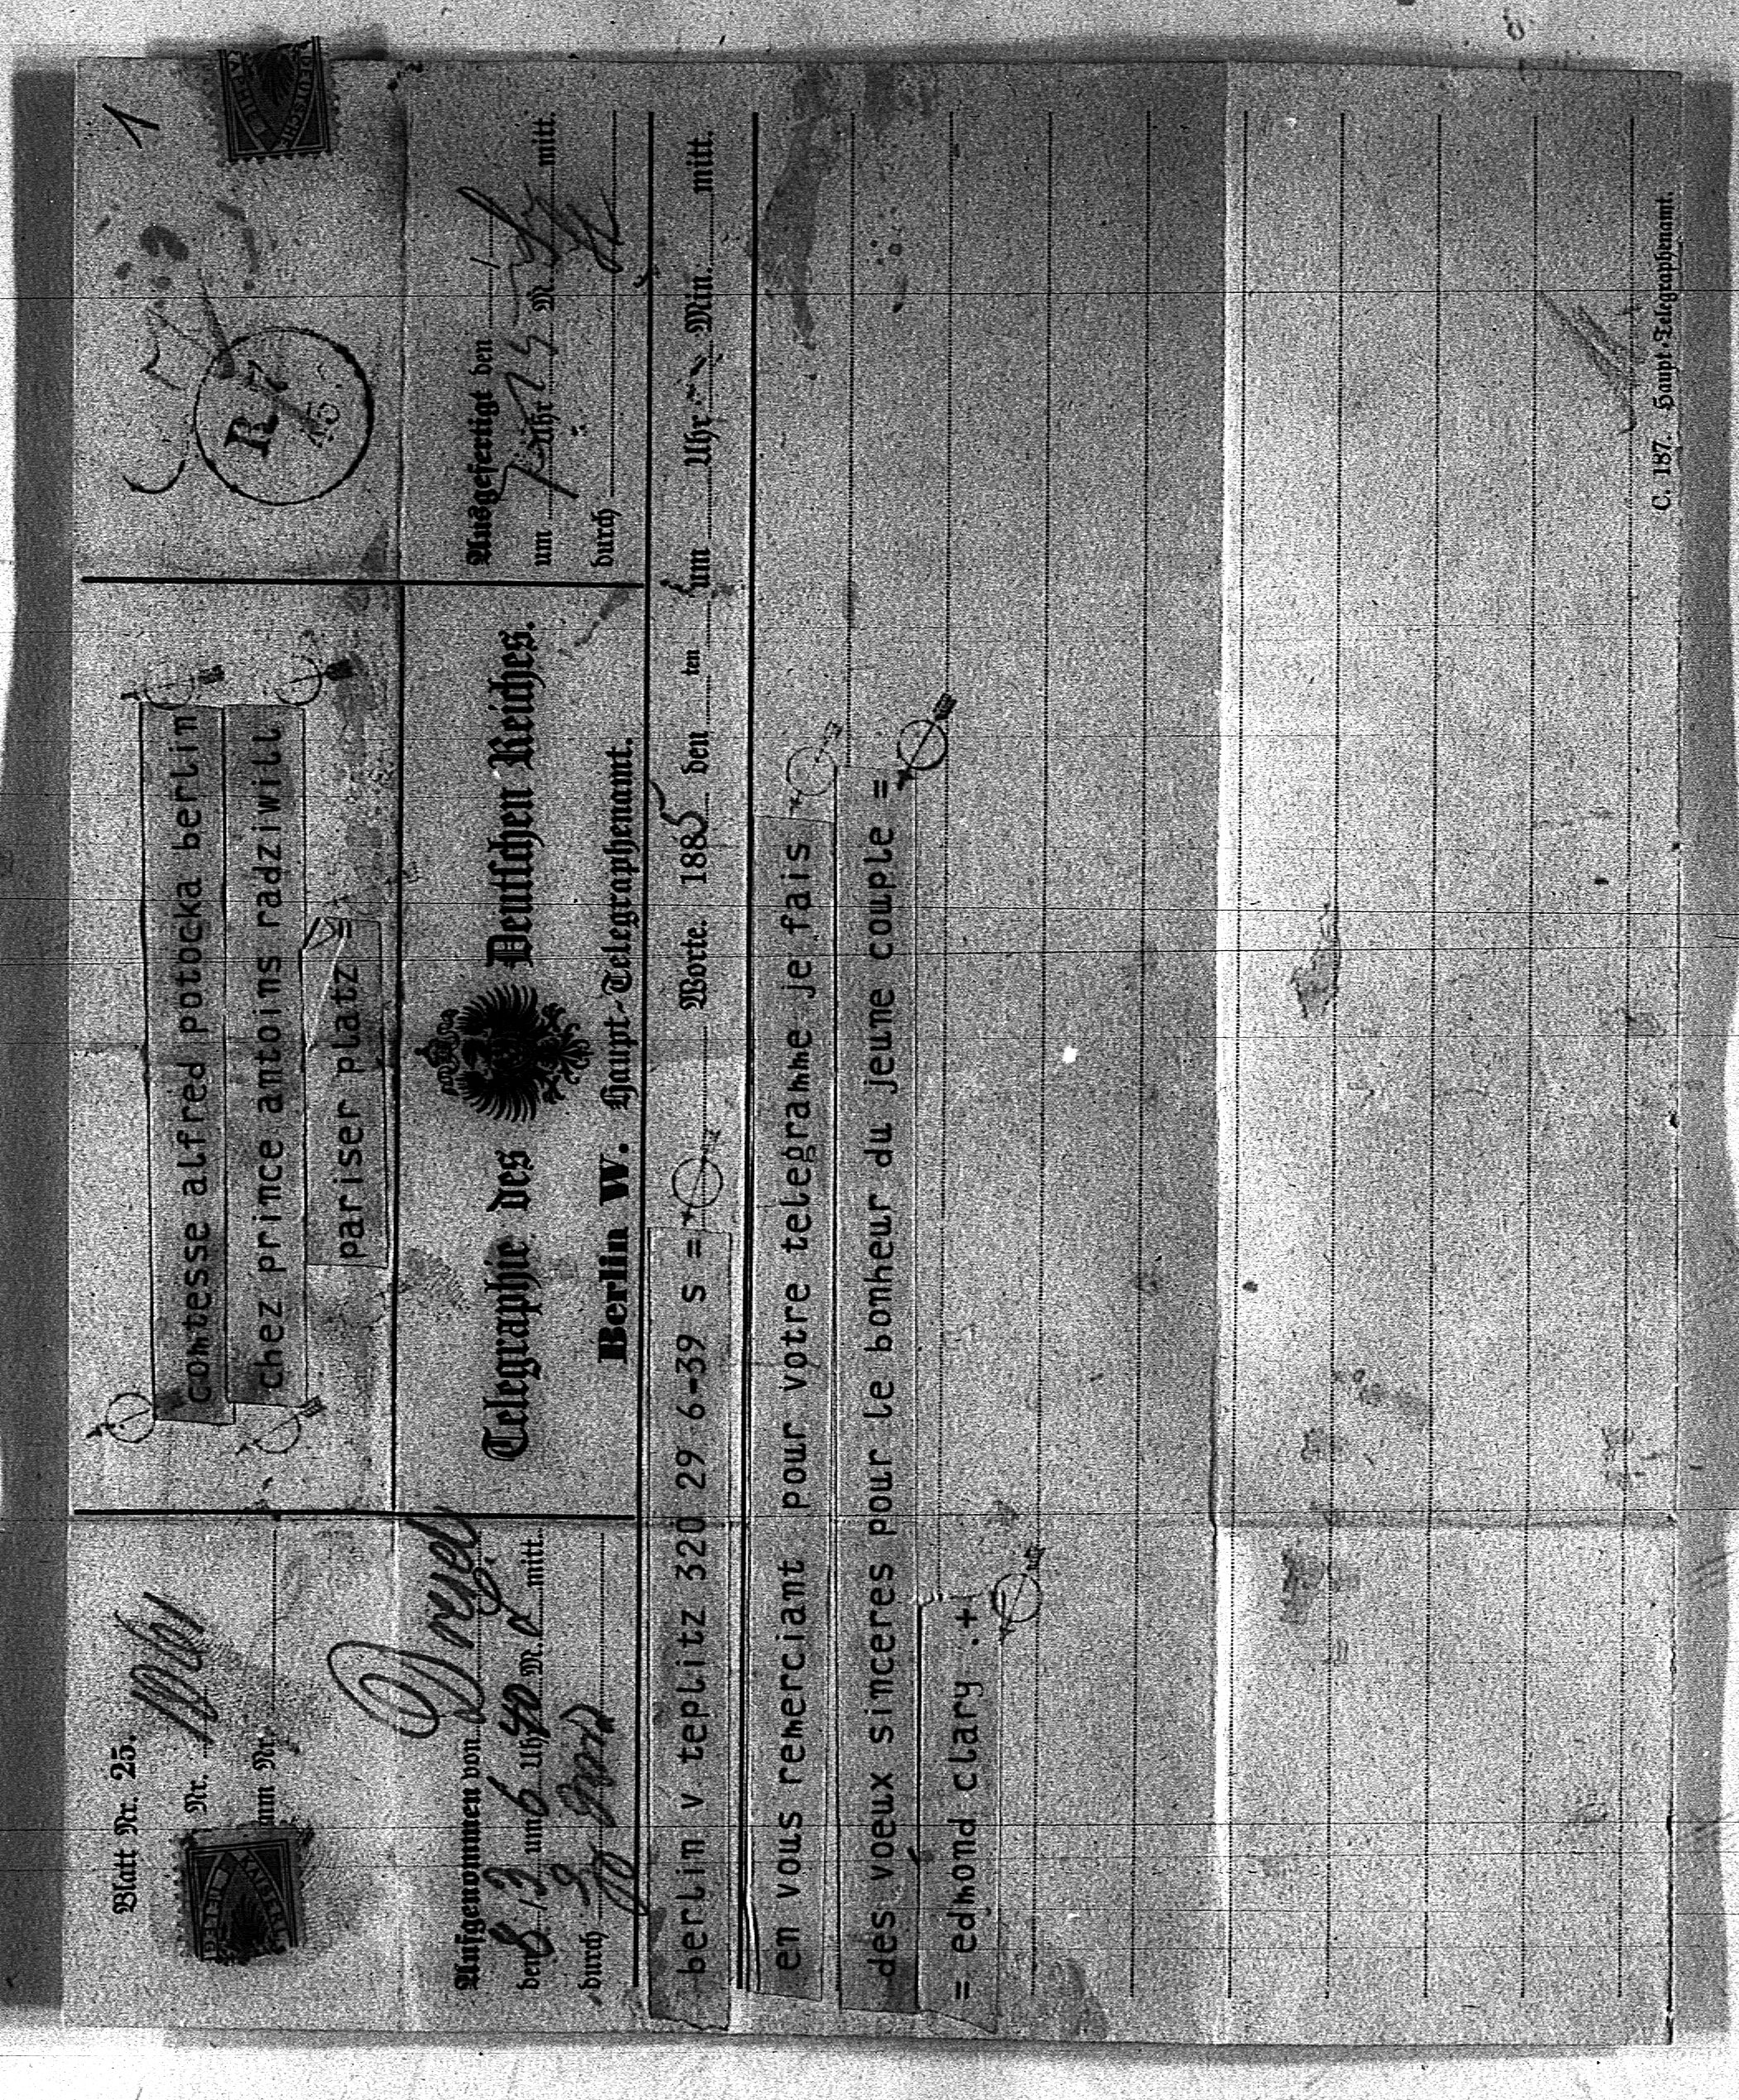 Blatt Nr. 25.
Nr.
zum Nr.
comtesse alfred potocka berlin
chez prince antoins radziwill
pariser platz =
1
R 7
Aufgenommen von Drzsd
den 8./3. um 6 Uhr 40 M. mitt.
durch
Telegraphie des Deutschen Reiches.
Berlin W. Haupt-Telegraphenamt.
Ausgefertigt den
um 7 Uhr M. mitt.
durch
berlin v teplitz 320 29 6-39 s = Worte. 1885 den ten um Uhr Min. mitt.
en vous remerciant pour votre telegramme je fais
des voeux sinceres pour le bonheur du jeune couple =
= edmond clary .+
C. 187. Haupt-Telegraphenamt.